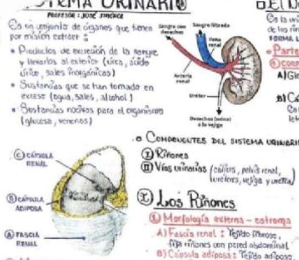 TEMA URINARIO
PROFESOR : JOSÉ
Es un conjunto de órganos que tienen
por misión extraer :
Productos de excreción de la sangre
y llevarlos al exterior (urea, ácido
úrico, sales inorgánicas)
Sustancias que se han tomado en
exceso (agua, sales, alcohol)
Sustancias nocivas para el organismo
(glucosa, venenos)
Sangre con
desechos
Sangre filtrada
Vena
renal
Arteria
renal
Uréter
Desechos (orina)
a la vejiga
COMPONENTES DEL SISTEMA URINARIO
I Riñones
II Vías urinarias (cálices, pelvis renal,
uréteres, vejiga y uretra)
I Los Riñones
Morfología externa -
A) Fascia renal : Tejido fibroso,
fija riñones con pared abdominal
B) Cápsula adiposa : Tejido adiposo
C) CÁPSULA
RENAL
B) CÁPSULA
ADIPOSA
A) FASCIA
RENAL